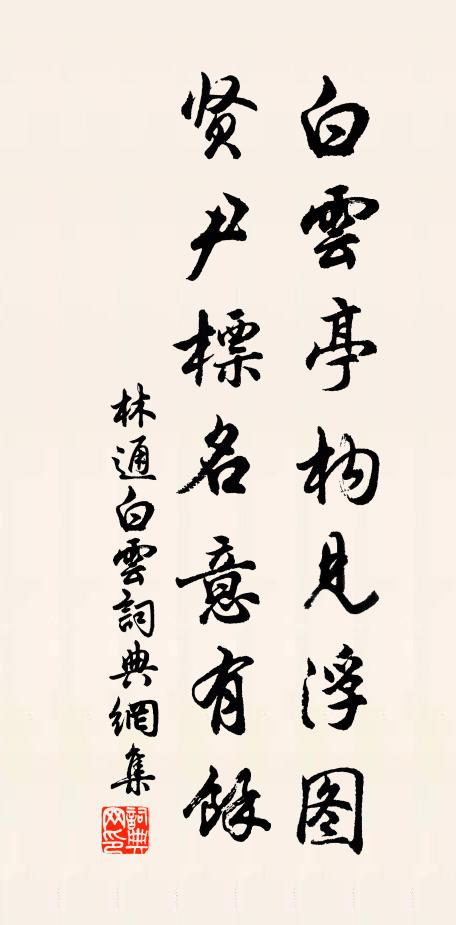 白雲亭构見浮图
贤尹標名意有餘
林通白雲詞典網集
詞典网印